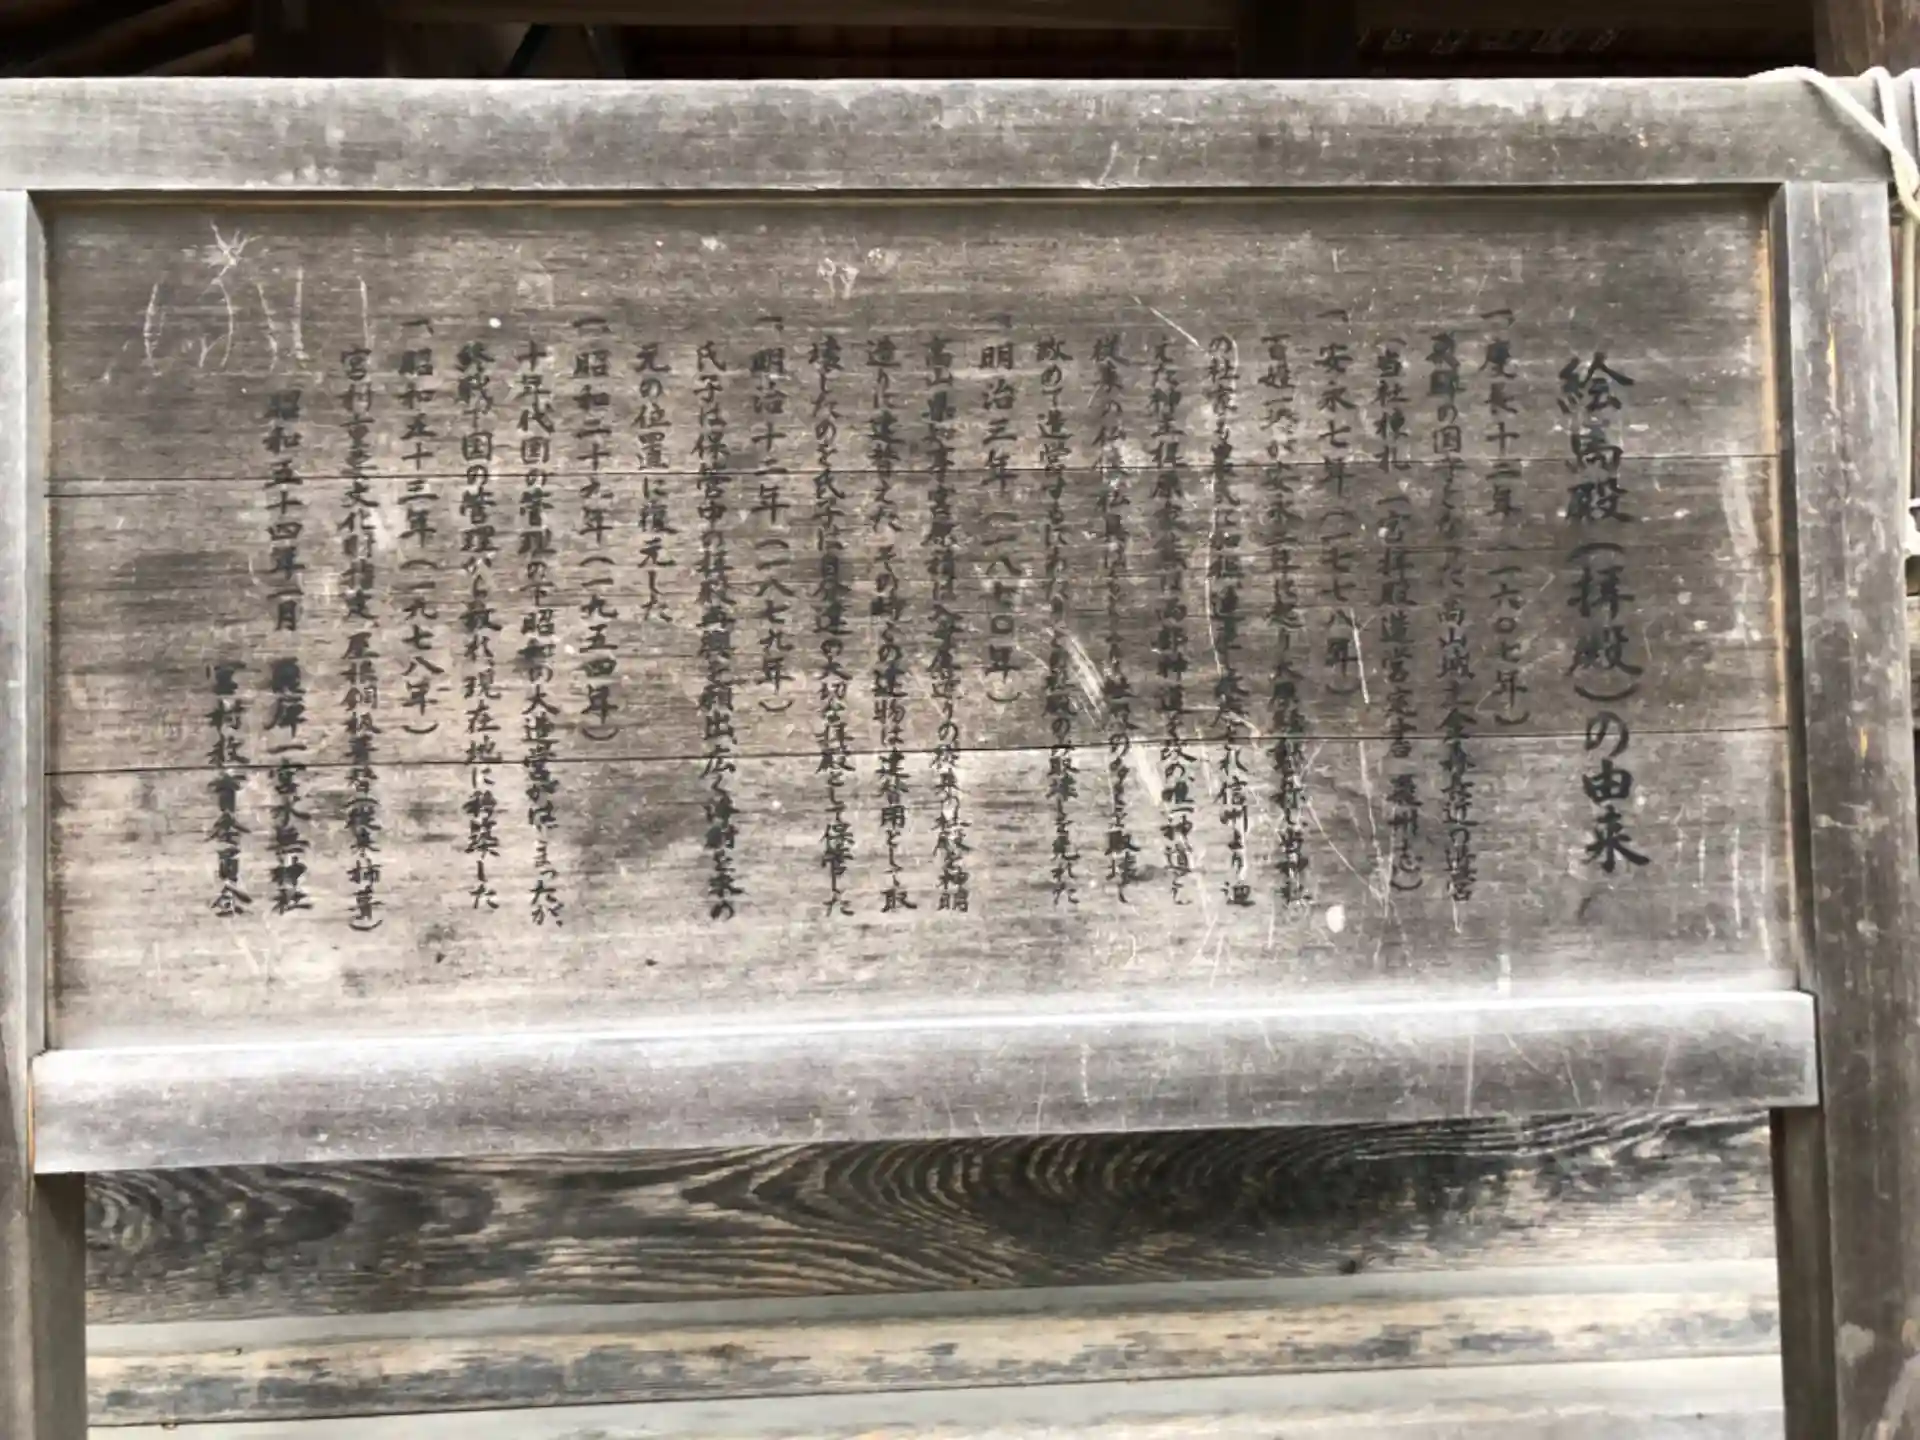 絵馬殿(拝殿)の由来
一、慶長十二年(一六〇七年)
飛騨の国守となった高山城主金森長近の造営
(当社棟札 一宮拝殿造営定書 飛州志)
一、安永七年(一七七八年)
百姓一揆が安永二年に起り大原騒動と称し当神社
の社家も
信州より迎
えた神主梶原家熊は両部神道を改め唯一神道とし
従来の仏像仏具はもとより社殿の多くを取壊し
改めて造営するにあたりこの社殿のみ取壊しを免れた
一、明治三年(一八七〇年)
高山県知事宮原積は入母屋造りの従来の社殿を神明
造りに建替えた その時この建物は建替用として取
壊したのを氏子は自普請の大切な拝殿として保管した
一、明治十二年(一八七九年)
氏子は保管中の拝殿再興を願出広く浄財を求め
元の位置に復元した
一、昭和二十九年(一九五四年)
十年代国の管理の下昭和の大造営がはじまったが、
終戦で国の管理から放れ現在地に移築した
一、昭和五十三年(一九七八年)
宮村重要文化財指定、屋根銅板葺替(従来杮葺)
昭和五十四年一月 飛騨一宮水無神社
宮村教育委員会